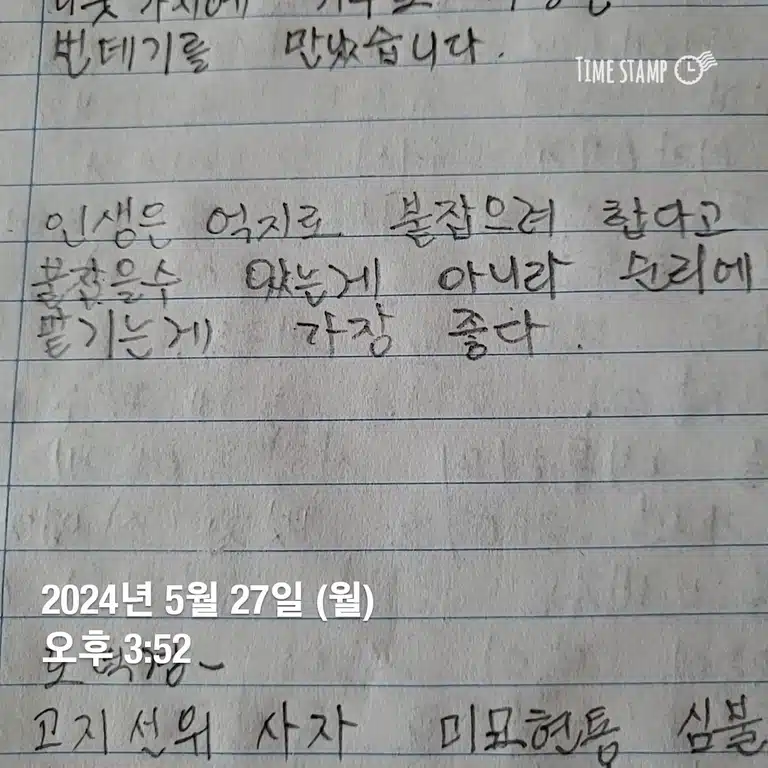 번데기를 만났습니다.
TIME STAMP
인생은 억지로 붙잡으려 합다고
붙잡을수 있는게 아니라 순리에
맡기는게 가장 좋다.
2024년 5월 27일 (월)
오후 3:52
도덕경~
고지선위 사자 미묘현통 심불